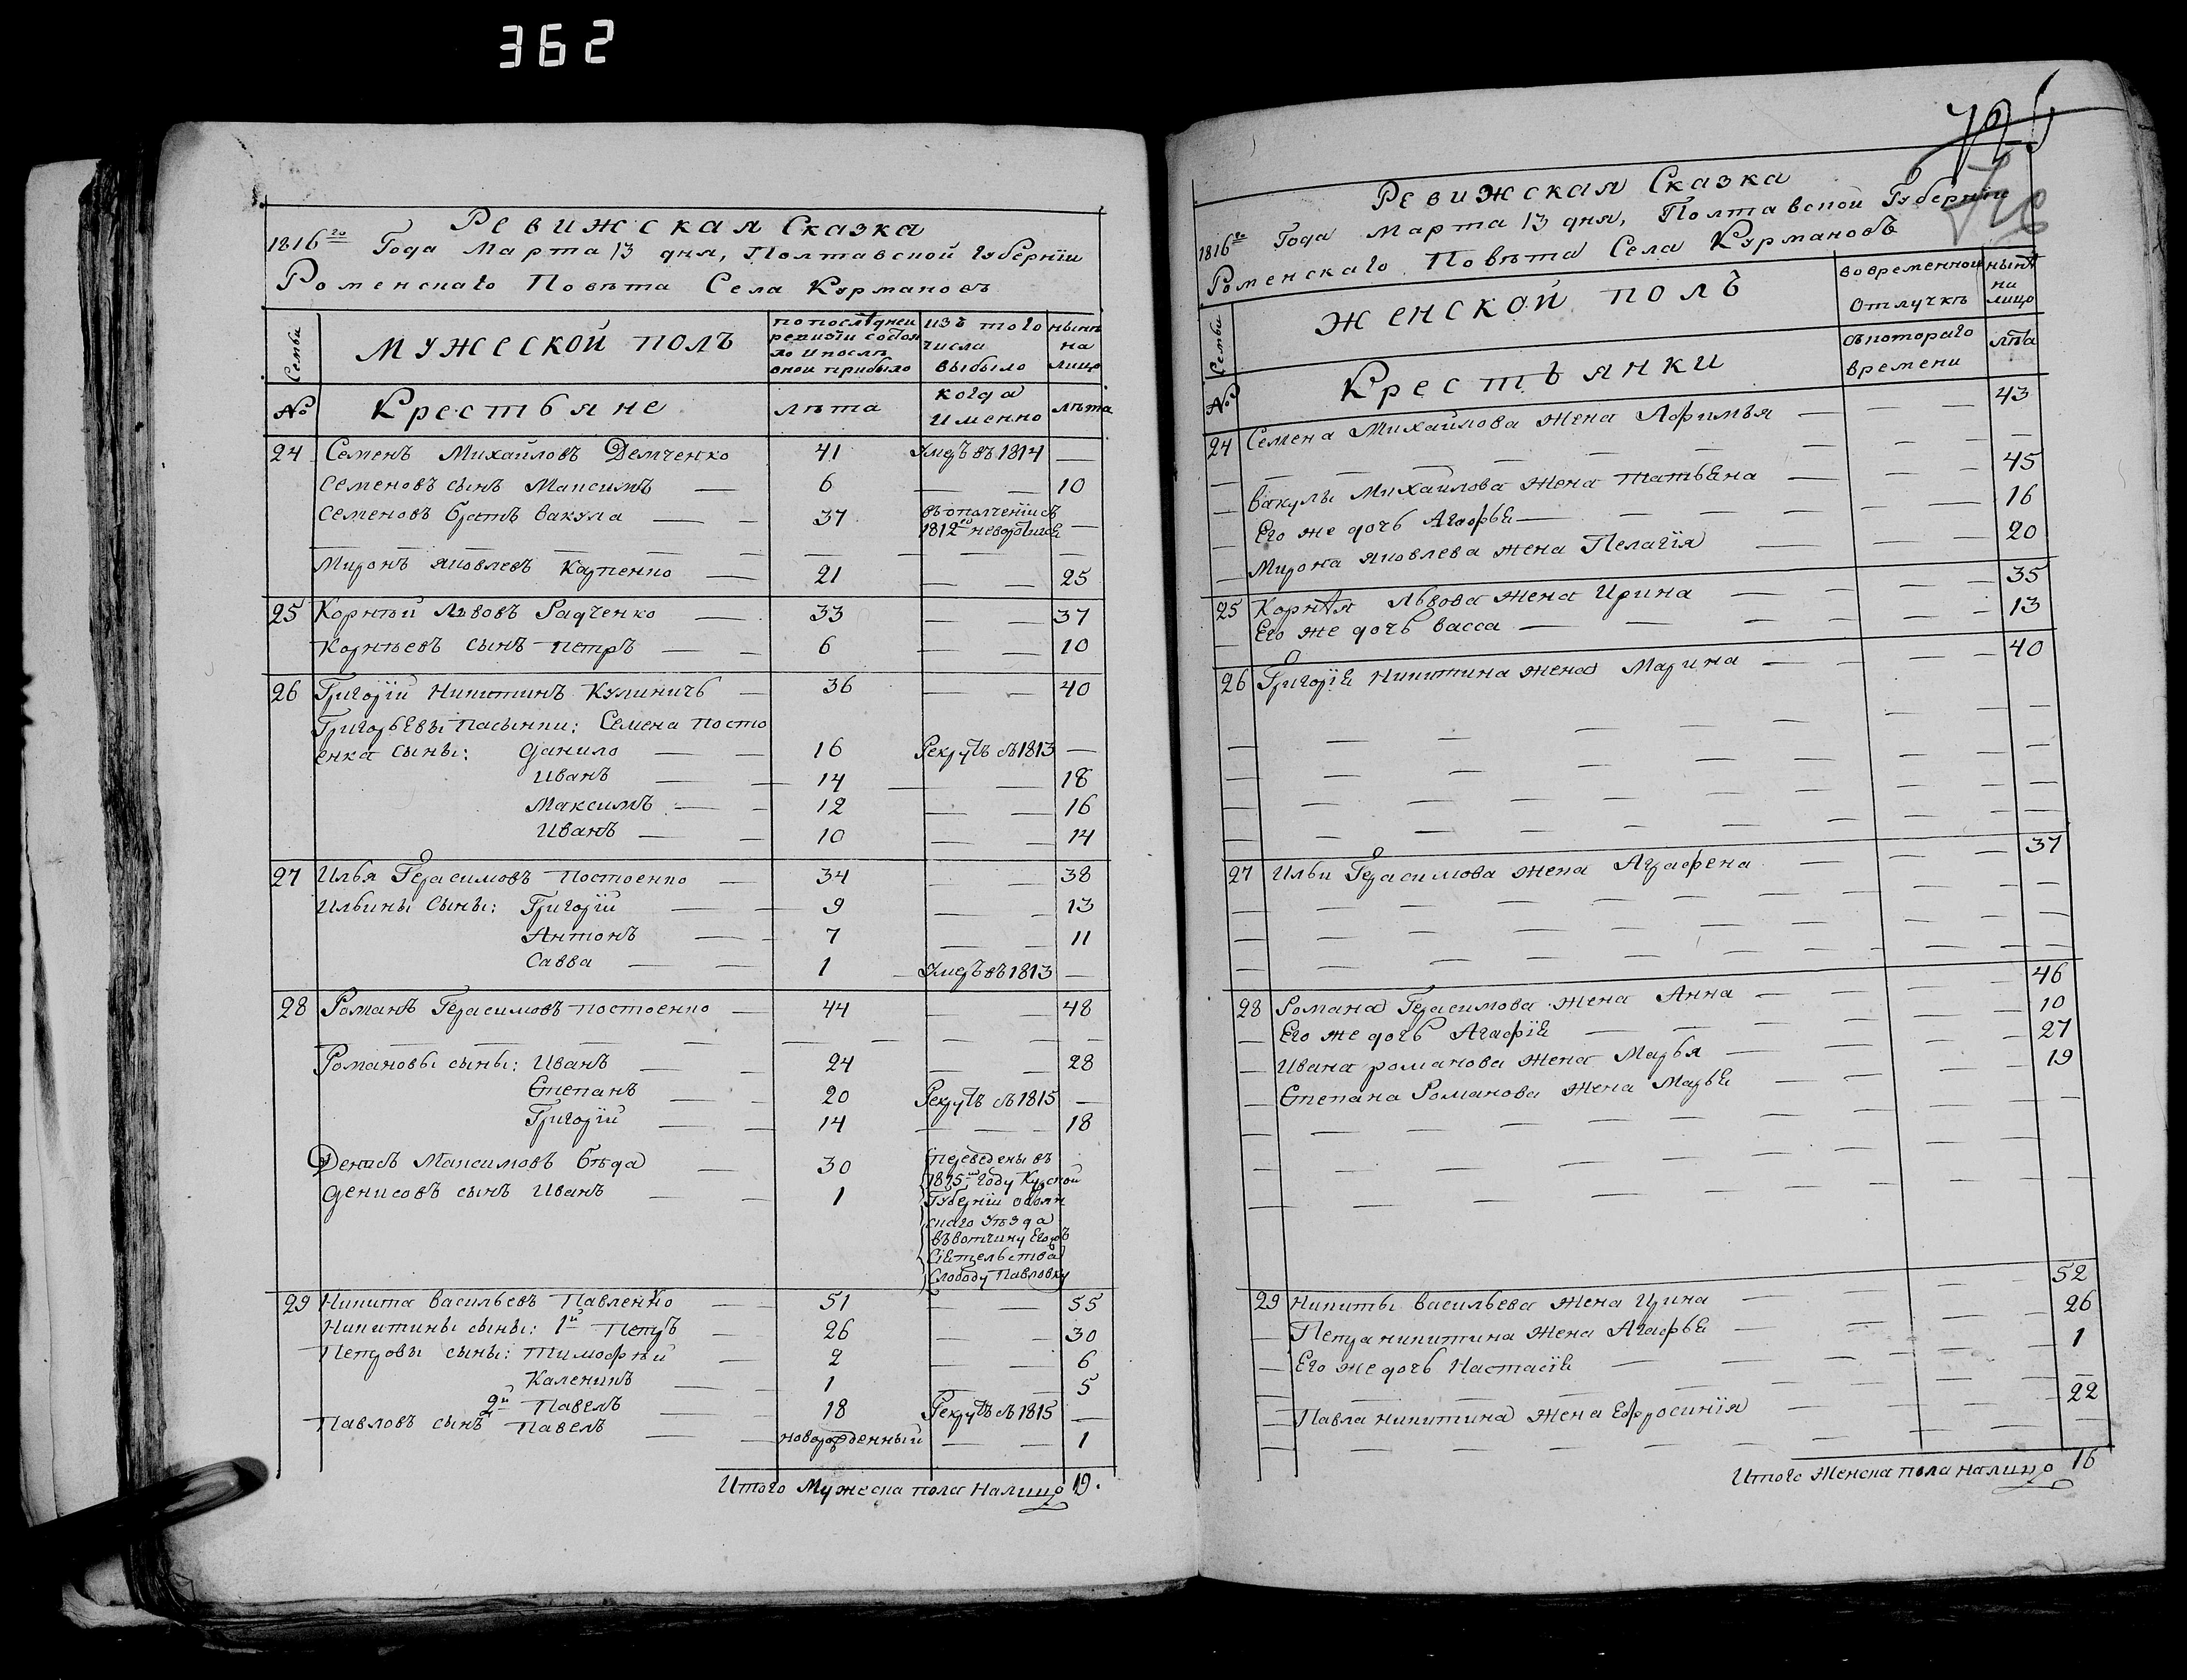 362
Ревижская Сказка
1816го Года Марта 13 дня, Полтавской Губерніи
Роменскаго Повѣта Села Курмановъ
Семьи
МУЖЕСКОЙ ПОЛЪ
по последней
ревизіи состоя
ло и послѣ
оной прибыло
изъ того
числа
выбыло
нынѣ
на
лицо
№
Крестьяне
лѣта
когда
именно
лѣта
24 Семенъ Михайловъ Демченко — 41 Умеръ въ 1814 —
Семеновъ сынъ Максимъ — 6 — — 10
Семеновъ братъ Вакула — — 37 въ ополченіи съ
1812го невозвратился —
Миронъ Яковлевъ Карпенко — 21 — — 25
25 Корнѣй Львовъ Радченко — 33 — — 37
Корнѣевъ сынъ Петръ — — 6 — — 10
26 Григорій Никитинъ Кулиничъ — 36 — — 40
Григорьевы пасынки: Семена Посто
енка сыны: Данило — — 16 Рекрутъ съ 1813 —
Иванъ — — 14 — — 18
Максимъ — — 12 — — 16
Иванъ — — 10 — — 14
27 Илья Герасимовъ Постоенко — 34 — — 38
Ильины Сыны: Григорій — — 9 — — 13
Антонъ — — 7 — — 11
Савва — — 1 — Умеръ въ 1813 —
28 Романъ Герасимовъ Постоенко — 44 — — 48
Романовы сыны: Иванъ — — 24 — — 28
Степанъ — — 20 Рекрутъ съ 1815 —
Григорій — — 14 — — 18
Денисъ Максимовъ Бѣда — 30 переведены въ
1815м Году Курской
Денисовъ сынъ Иванъ — — 1 Губерніи Обоян
скаго Уѣзда
въ вотчину Его
Сіятельства
Слободу Павловку
29 Никита Васильевъ Павленко — 51 — — 55
Никитины сыны: 1й Петръ — 26 — — 30
Петровы сыны: Тимофѣй — 2 — — 6
Каленикъ — — 1 — — 5
2й Павелъ — — 18 Рекрутъ съ 1815 —
Павловъ сынъ Павелъ — — новорожденный — — 1
Итого Мужеска пола налицо 19.
Ревижская Сказка
1816го Года Марта 13 дня, Полтавской Губерніи
Роменскаго Повѣта Села Курмановъ
Семьи
ЖЕНСКОЙ ПОЛЪ
во временной
отлучкѣ
нынѣ
на
лицо
№
Крестьянки
съ котораго
времени
лѣта
24 Семена Михайлова жена Афимья — — — 43
Вакулы Михайлова жена Татьяна — — — 45
Его же дочь Агафья — — — 16
Мирона Яковлева жена Пелагія — — — 20
25 Корнѣя Львова жена Ирина — — — 35
Его же дочь Васса — — — 13
26 Григорія Никитина жена Марина — — — 40
27 Ильи Герасимова жена Аграфена — — — 37
28 Романа Герасимова жена Анна — — — 46
Его же дочь Агафія — — — 10
Ивана Романова жена Марья — — — 27
Степана Романова жена Марья — — — 19
29 Никиты Васильева жена Ирина — — — 52
Петра Никитина жена Агафья — — — 26
Его же дочь Настасія — — — 1
Павла Никитина жена Ефросинія — — — 22
Итого Женска пола налицо 16